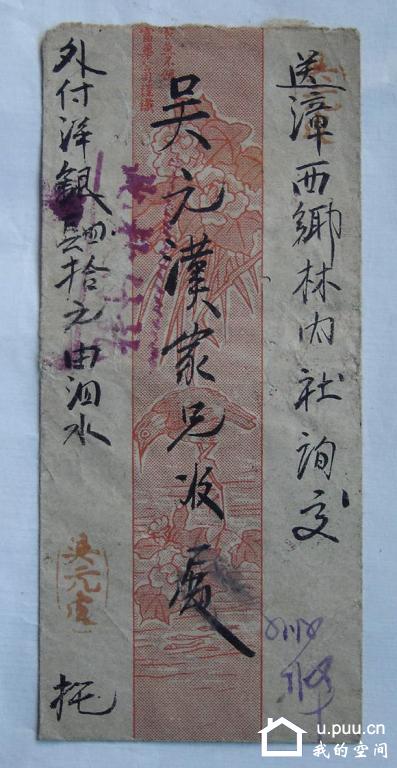 送漳西鄉林内社詢交
吴元漢家兄收處
外付洋銀肆拾元由泗水
吳元
托
u.puu.cn
我的空间